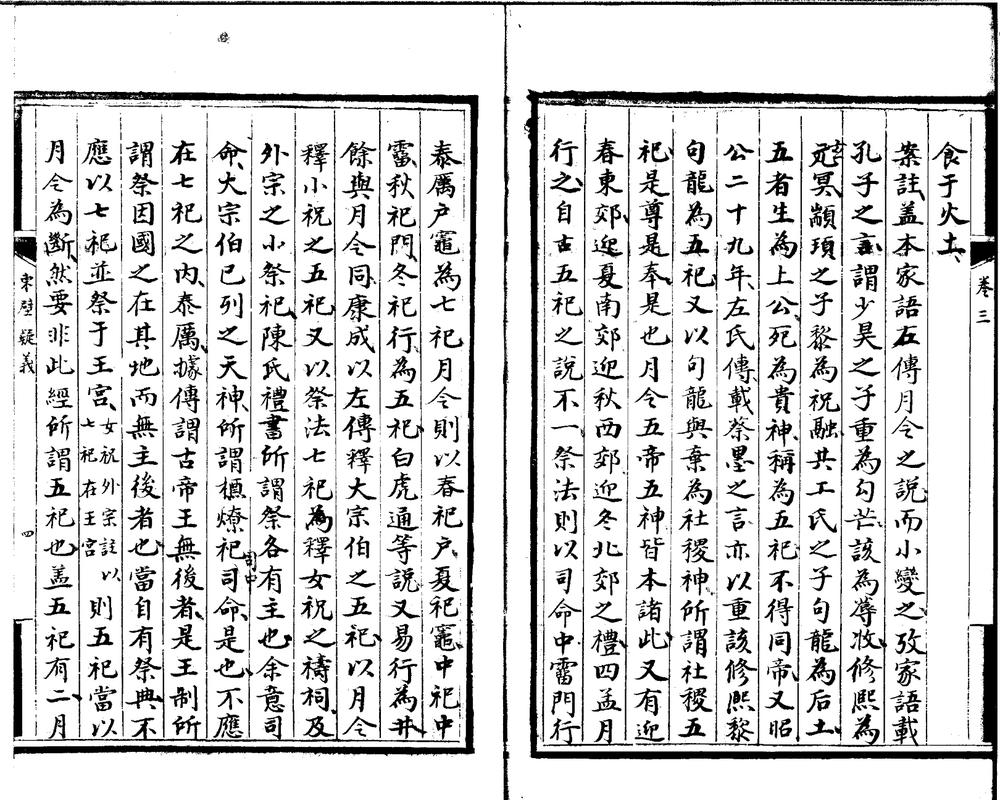 食于火土
案註蓋本家語左傳月令之說而小變之攷家語載
孔子之言謂少昊之子重為勾芒該為蓐收修熙為
玄冥顓頊之子黎為祝融共工氏之子句龍為后土
五者生為上公死為貴神稱為五祀不得同帝又昭
公二十九年左氏傳載蔡墨之言亦以重該修熙黎
句龍為五祀又以句龍與棄為社稷神所謂社稷五
祀是尊是奉是也月令五帝五神皆本諸此又有迎
春東郊迎夏南郊迎秋西郊迎冬北郊之禮四孟月
行之自古五祀之說不一祭法則以司命中霤門行
卷三
泰厲戶竈為七祀月令則以春祀戶夏祀竈中祀中
霤秋祀門冬祀行為五祀白虎通等說又易行為井
餘與月令同康成以左傳釋大宗伯之五祀以月令
釋小祝之五祀又以祭法七祀為釋女祝之禱祠及
外宗之小祭祀陳氏禮書所謂祭各有主也余意司
命大宗伯已列之天神所謂槱燎祀司中司命是也不應
在七祀之內泰厲據傳謂古帝王無後者是王制所
謂祭因國之在其地而無主後者也當自有祭典不
應以七祀並祭于王宮女祝外宗註以七祀在王宮則五祀當以
月令為斷然要非此經所謂五祀也蓋五祀有二月
東壁疑義
四